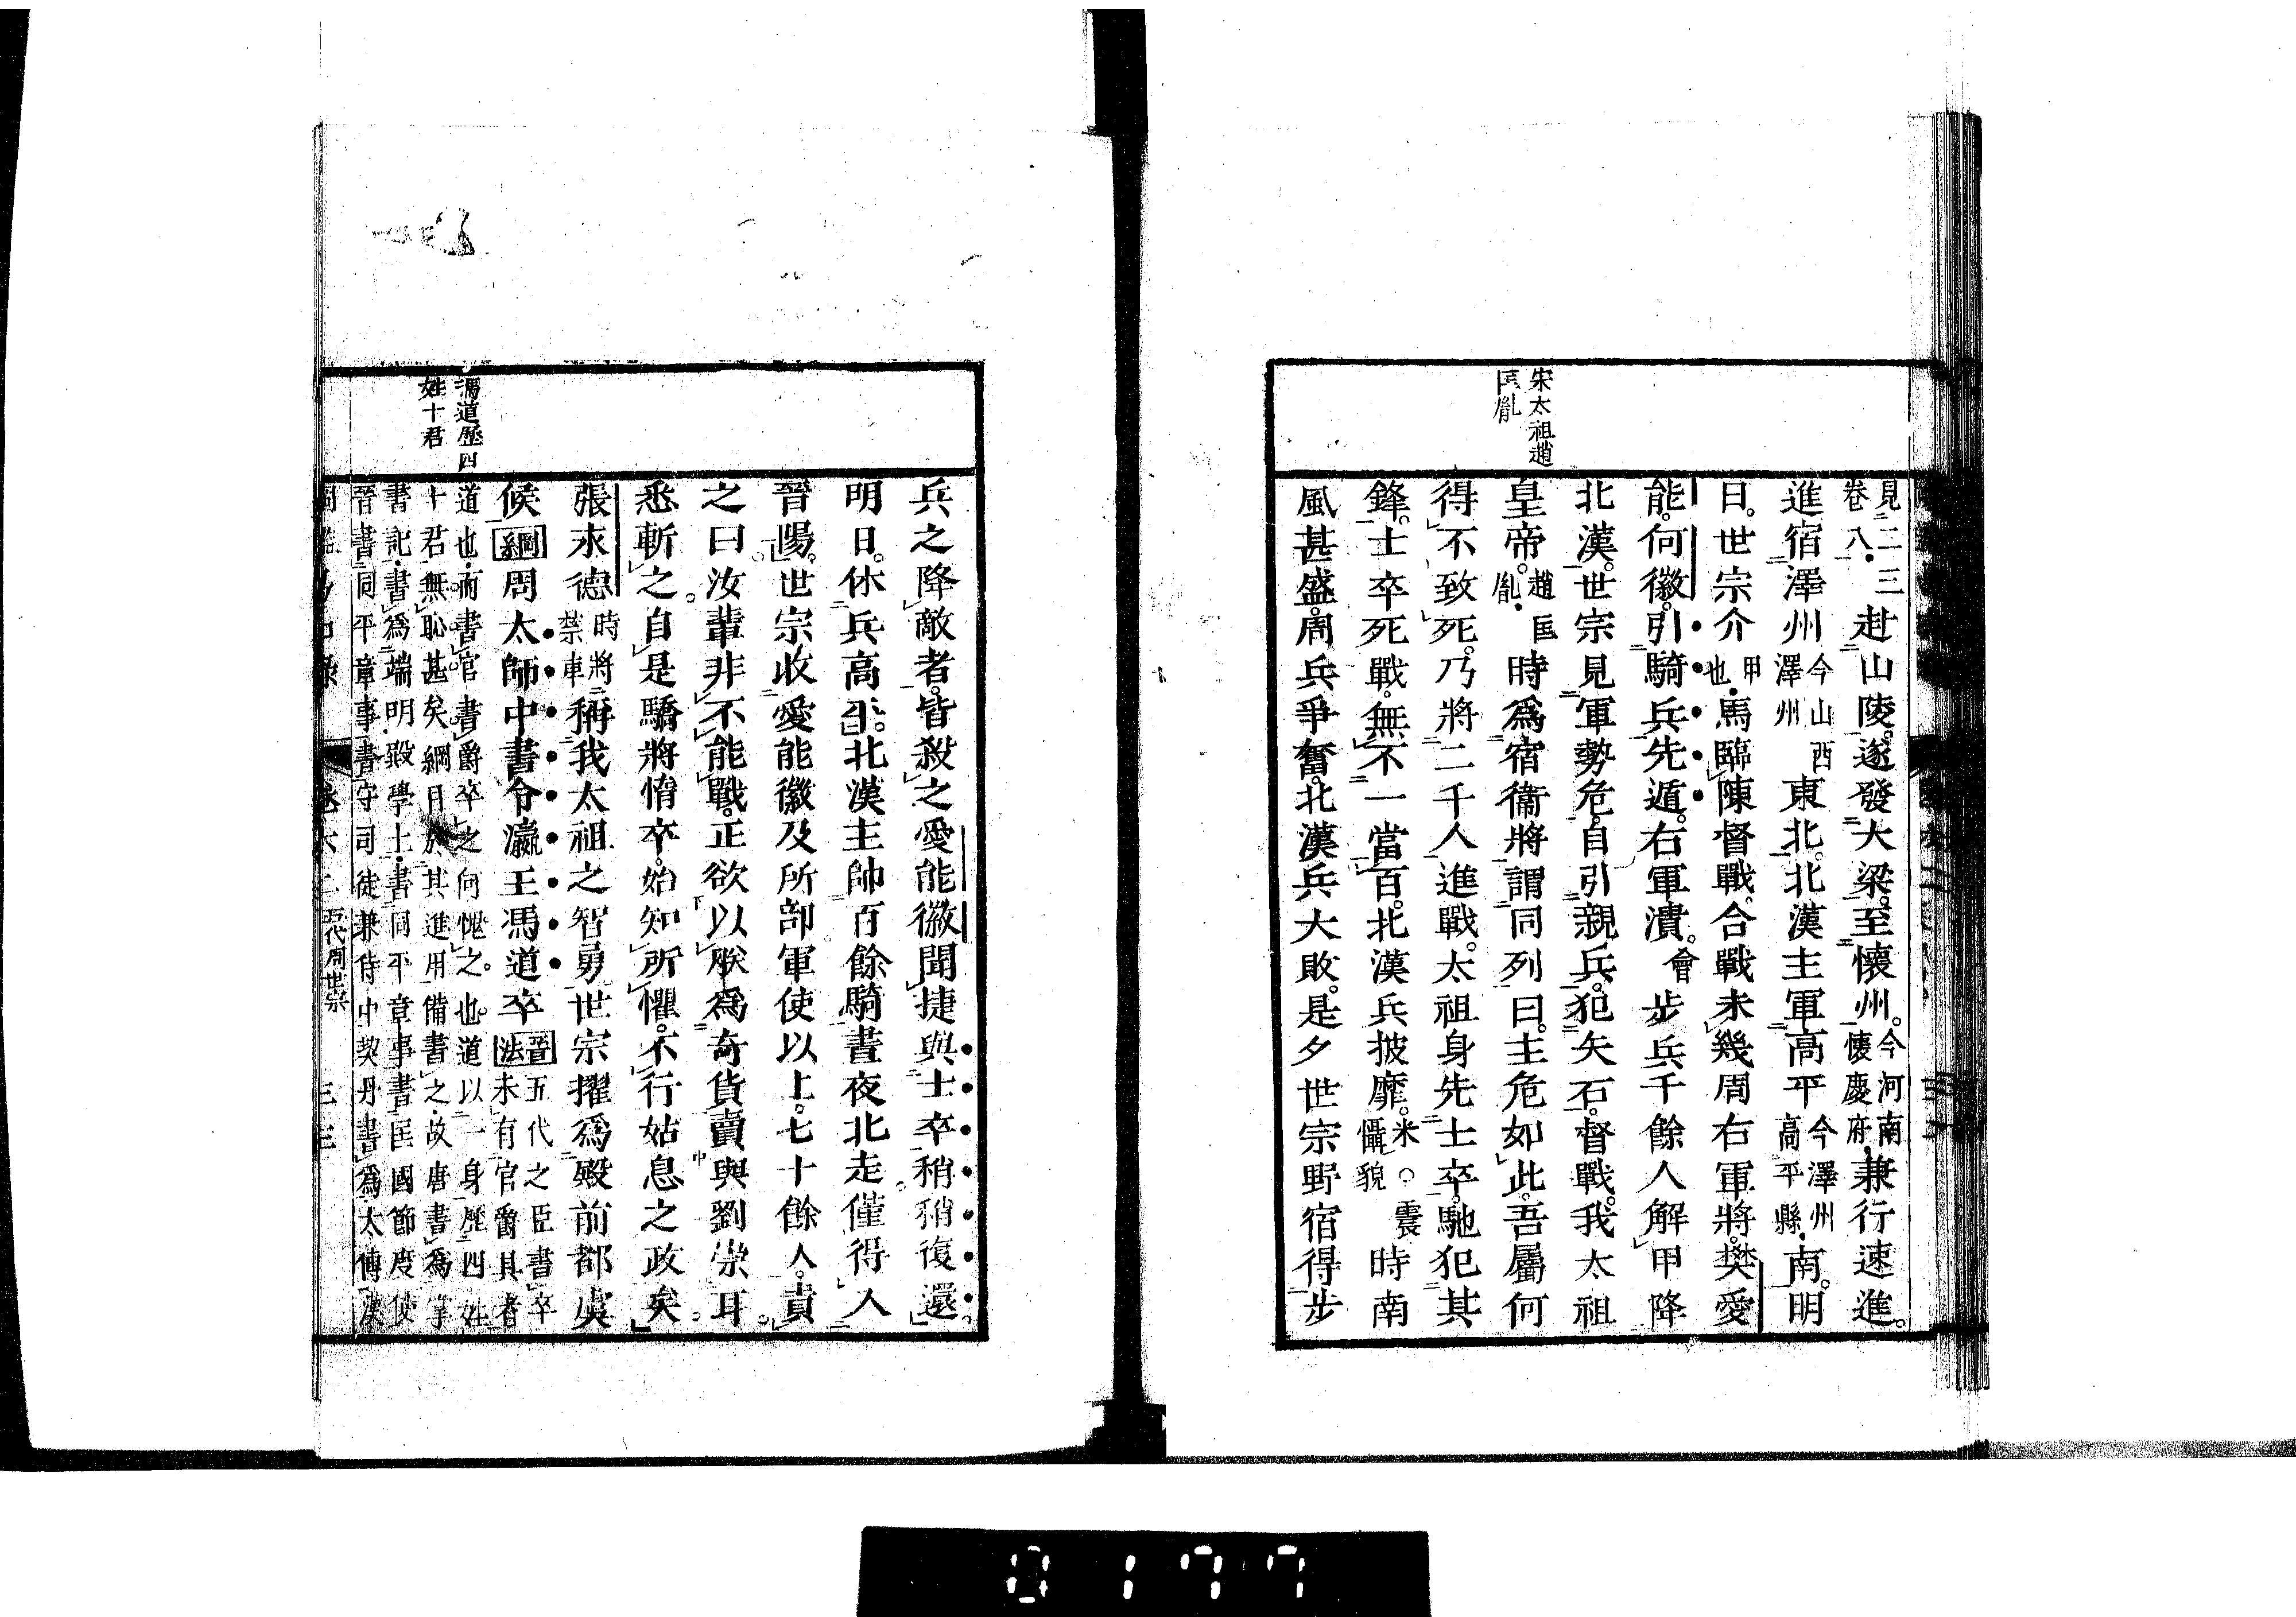 宋太祖趙
匡胤
見二三
卷八
赴山陵。遂發大梁。至懷州。
今河南
懷慶府
兼行速進。
進宿澤州
今山西
澤州
東北。北漢主軍高平
今澤州
高平縣
南。明
日。世宗介
甲
也
馬臨陳督戰。合戰未幾。周右軍將。樊愛
能。何徽。引騎兵先遁。右軍潰。會步兵千餘人解甲降
北漢。世宗見軍勢危。自引親兵。犯矢石。督戰。我太祖
皇帝。
趙匡
胤
時爲宿衞將。謂同列曰。主危如此。吾屬何
得不致死。乃將二千人進戰。太祖身先士卒。馳犯其
鋒。士卒死戰。無不一當百。北漢兵披靡。
米○震
懾貌
時南
風甚盛。周兵爭奮。北漢兵大敗。是夕世宗野宿。得步
兵之降敵者。皆殺之。愛能徽聞捷。與士卒稍稍復還。
明日。休兵高平。北漢主帥百餘騎。晝夜北走。僅得入
晉陽。世宗收愛能徽及所部軍使以上。七十餘人。責
之曰。汝輩非不能戰。正欲以朕爲奇貨賣與劉崇耳。
悉斬之。自是驕將惰卒。始知所懼。不行姑息之政矣。
張永德
時將
禁車
稱我太祖之智勇。世宗擢爲殿前都虞
候
綱
周太師中書令瀛王馮道卒
晉
法
五代之臣書卒
未有官爵具者
馮道歷四
姓十君
道也。而書官書爵卒之何愧之也。道以一身歷四姓
十君無恥甚矣綱目於其進用備書之。故唐書爲掌
書記。書爲端明殿學士。書同平章事書匡國節度使
晉書同平章事書守司徒兼侍中契丹書爲太傅漢
卷六二
五代周世宗
0177